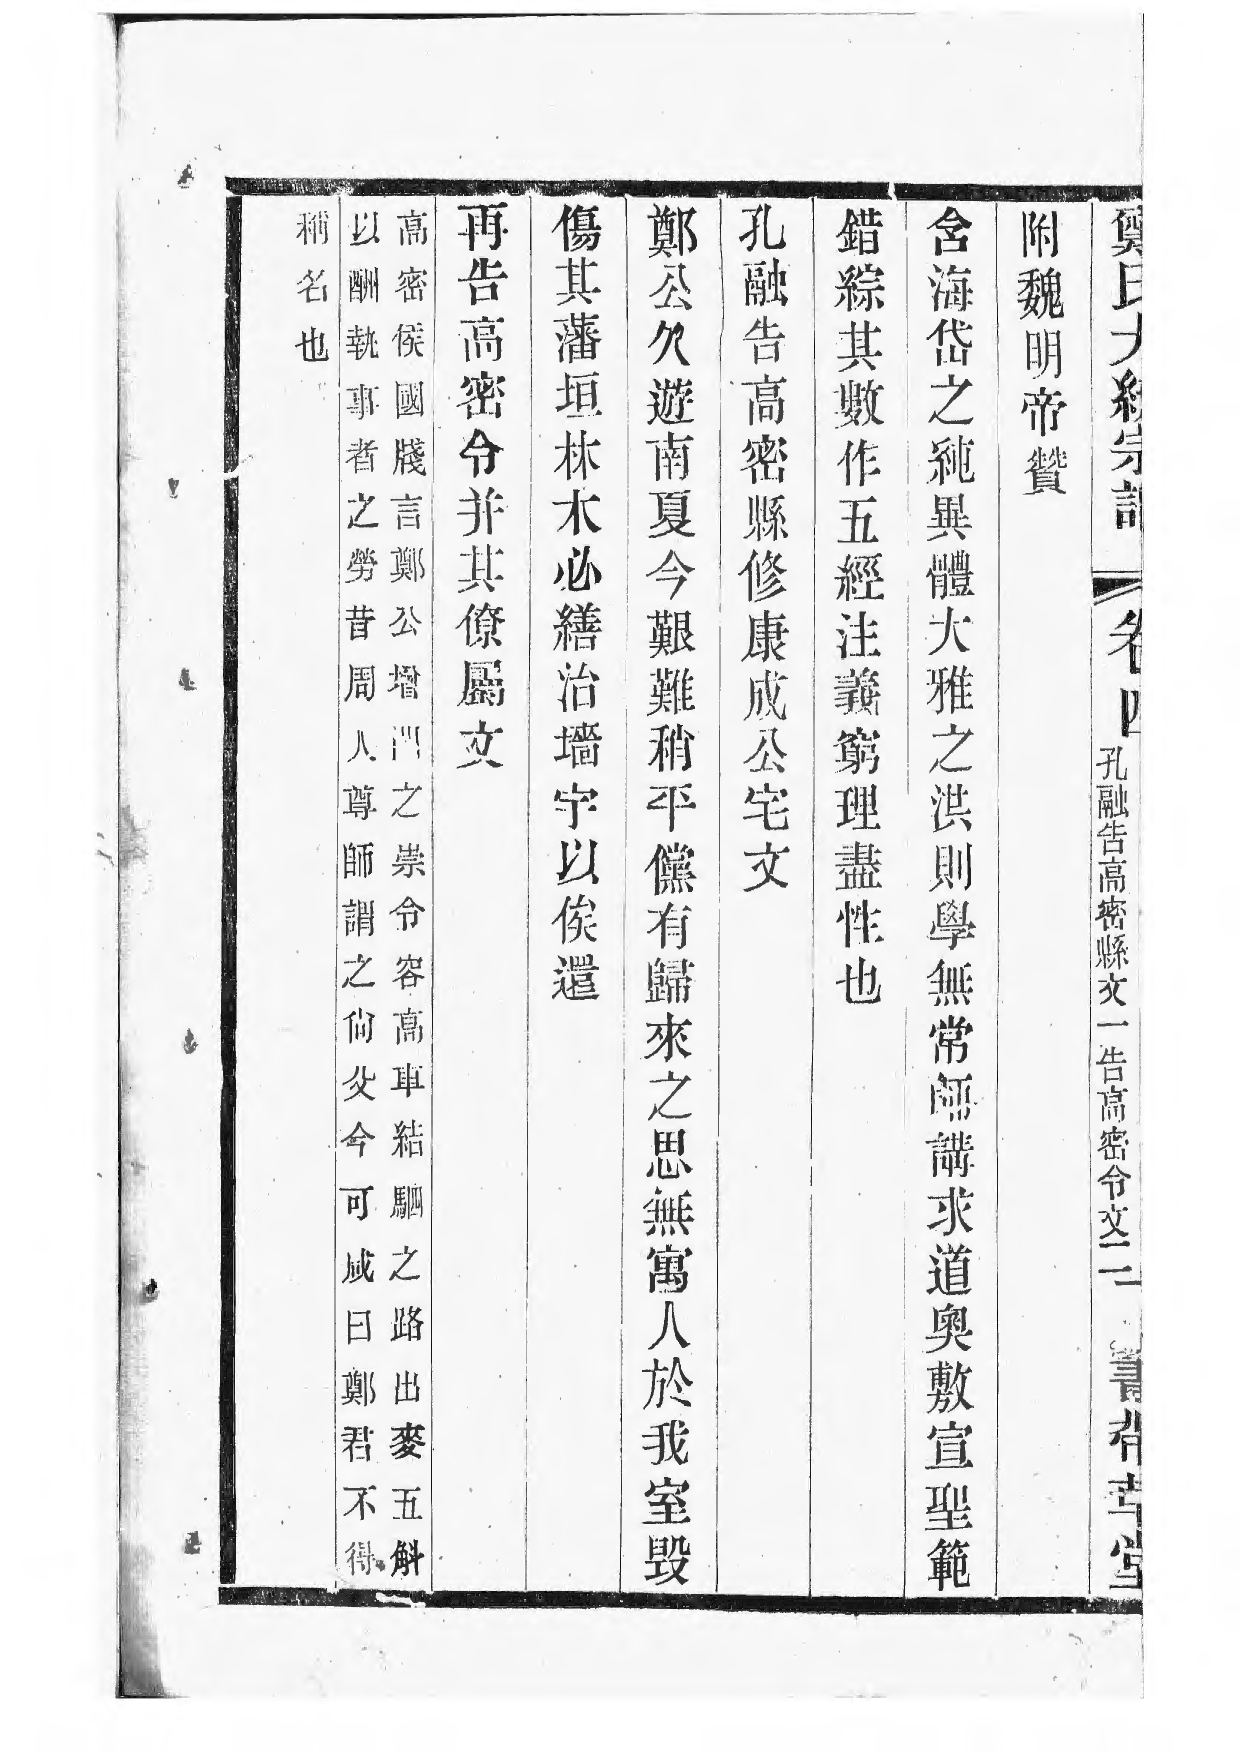 鄭氏大統宗譜 卷四 孔融告高密縣文一告高密令文二 書帶草堂
附魏明帝贊
含海岱之純異體大雅之洪則學無常師講求道奧敷宣聖範
錯綜其數作五經注義窮理盡性也
孔融告高密縣修康成公宅文
鄭公久遊南夏今艱難稍平儻有歸來之思無寓人於我室毀
傷其藩垣林木必繕治墻宇以俟還
再告高密令并其僚屬文
高密侯國牋言鄭公增門之崇令容高車結駟之路出麥五斛
以酬執事者之勞昔周人尊師謂之尚父今可咸曰鄭君不得
稱名也